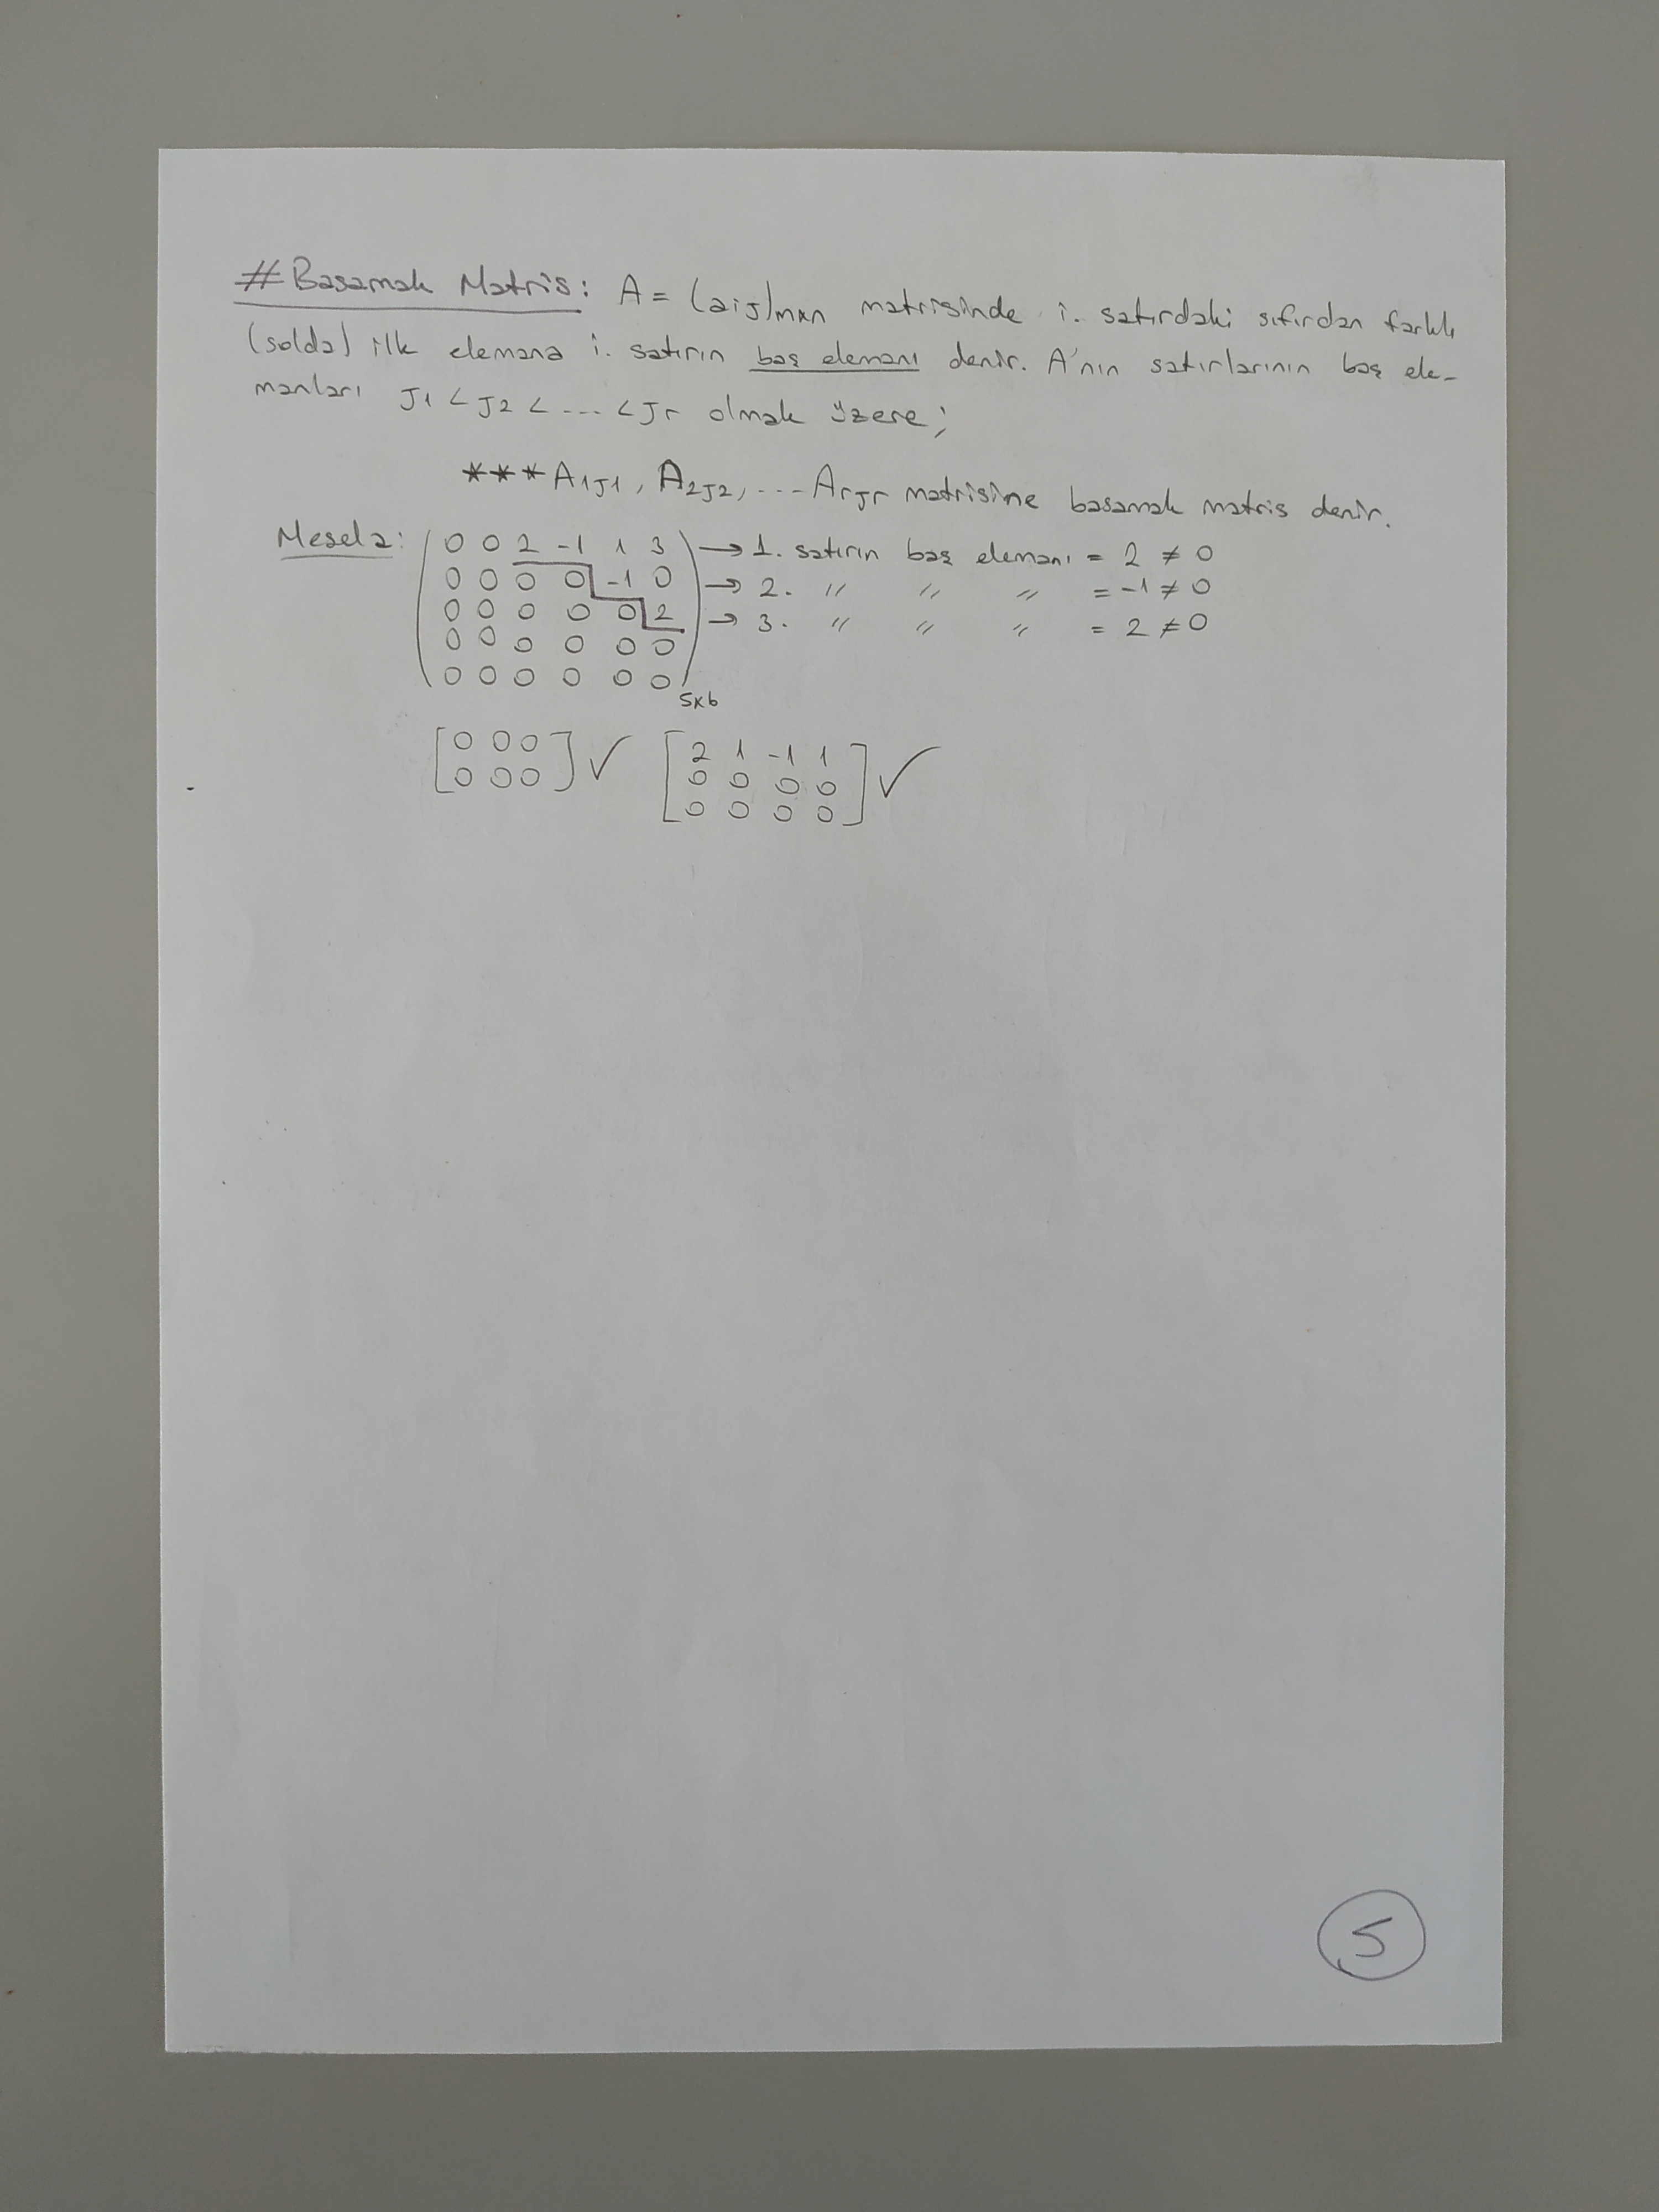 #Basamak Matris: A = (aiJ)mxn matrisinde i. satırdaki sıfırdan farklı
(solda) ilk elemana i. satırın baş elemanı denir. A'nın satırlarının baş ele-
manları J1 < J2 < ---- < Jr olmak üzere;
***A1J1, A2J2, --- ArJr matrisine basamak matris denir.
Mesela:
0 0 2 -1 1 3 → 1. satırın baş elemanı = 2 ≠ 0
0 0 0 0 -1 0 → 2. " " " = -1 ≠ 0
0 0 0 0 0 2 → 3. " " " = 2 ≠ 0
0 0 0 0 0 0
0 0 0 0 0 0
5x6
[0 0 0
0 0 0] ✓
[2 1 -1 1
0 0 0 0
0 0 0 0] ✓
5